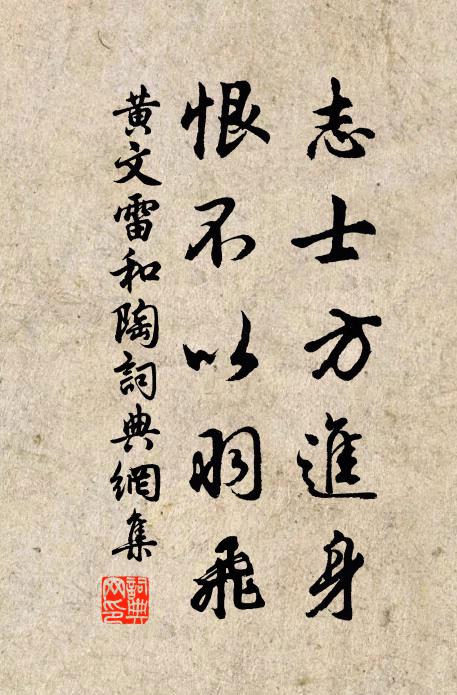 志士方進身
恨不以羽飛
黃文雷和陶詞典網集
詞典網印